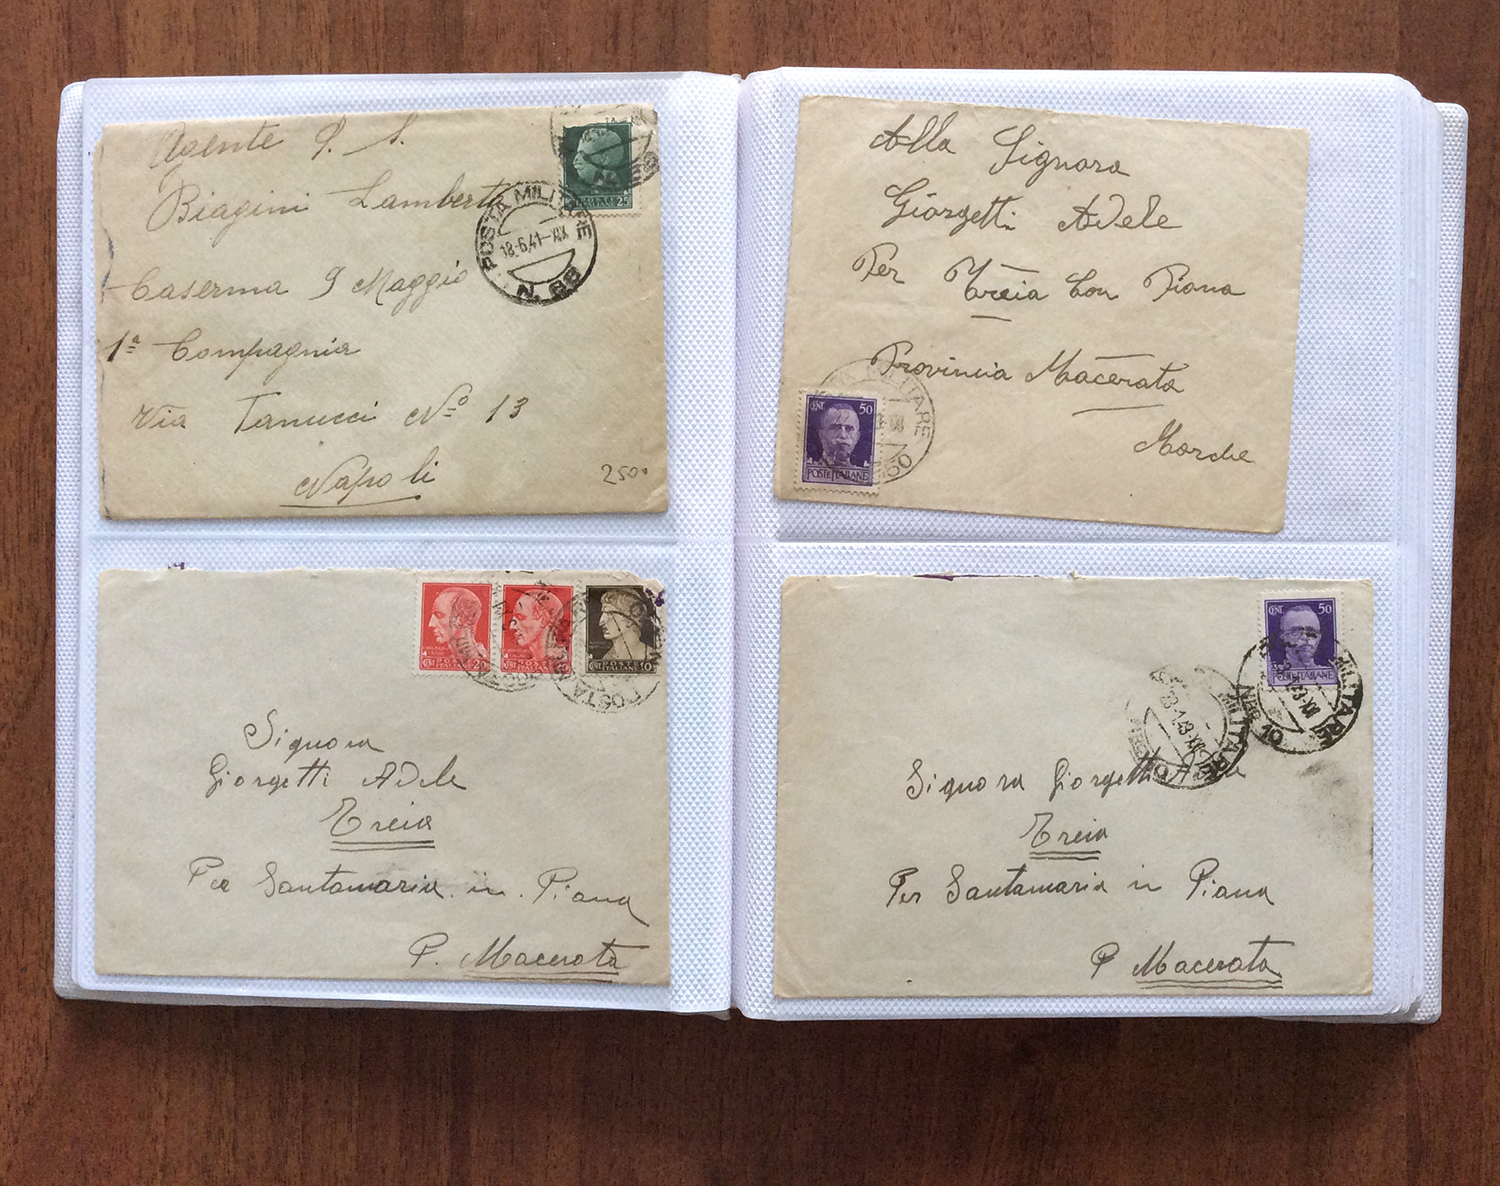 Agente P. S.
Biagini Lamberto
Caserma 9 Maggio
1ª Compagnia
Via Tanucci Nº 13
Napoli
POSTA MILITARE
18.6.41-XIX
N. 88
25
2500
Alla Signora
Giorgetti Adele
Per Treia Con Piana
Provincia Macerata
Marche
CENT 50
POSTE ITALIANE
MILITARE
50
Signora
Giorgetti Adele
Treia
Per Santamaria in Piana
P. Macerata
CENT 20
CENT
POSTE
ITALIANE
10
POSTA M
Signora Giorgetti
Treia
Per Santamaria in Piana
P Macerata
CENT 50
POSTE ITALIANE
MILITARE
MILITARE